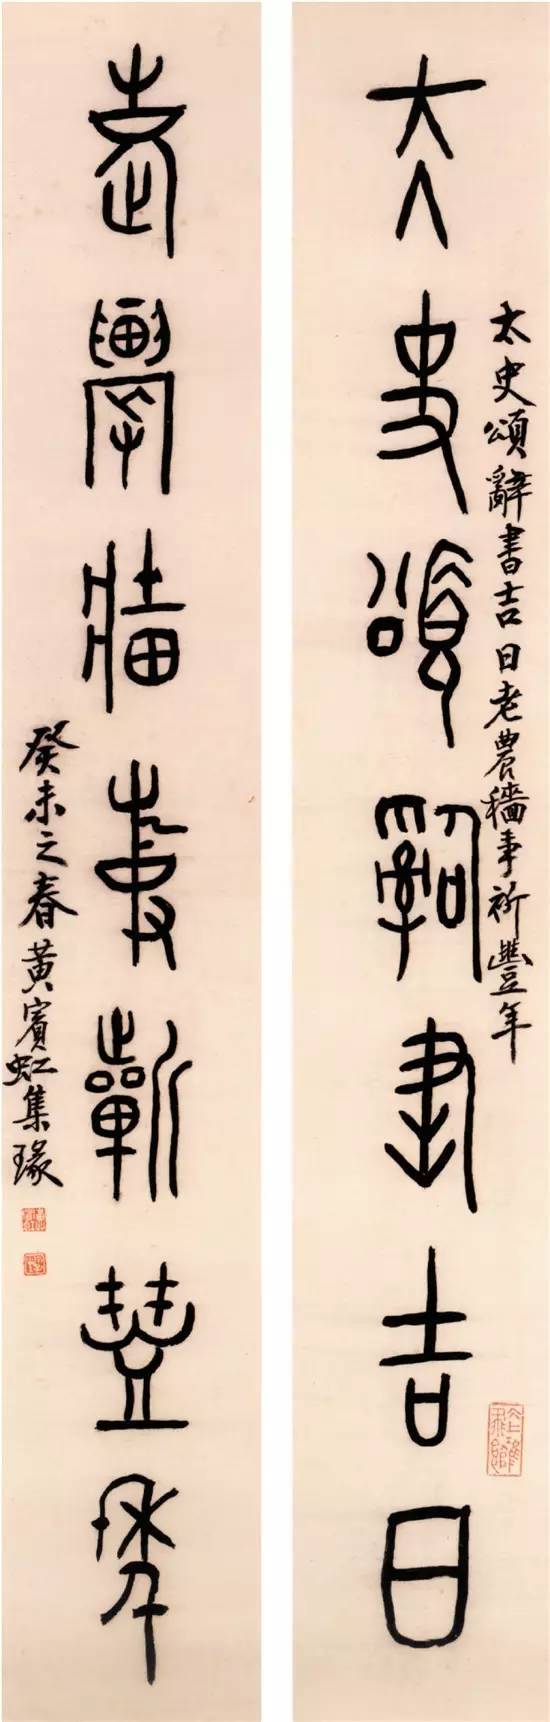 大史頌辭書吉日
太史頌辭書吉日老農穡事祈豐年
老農穡事祈豐年
癸未之春黃賓虹集瑑